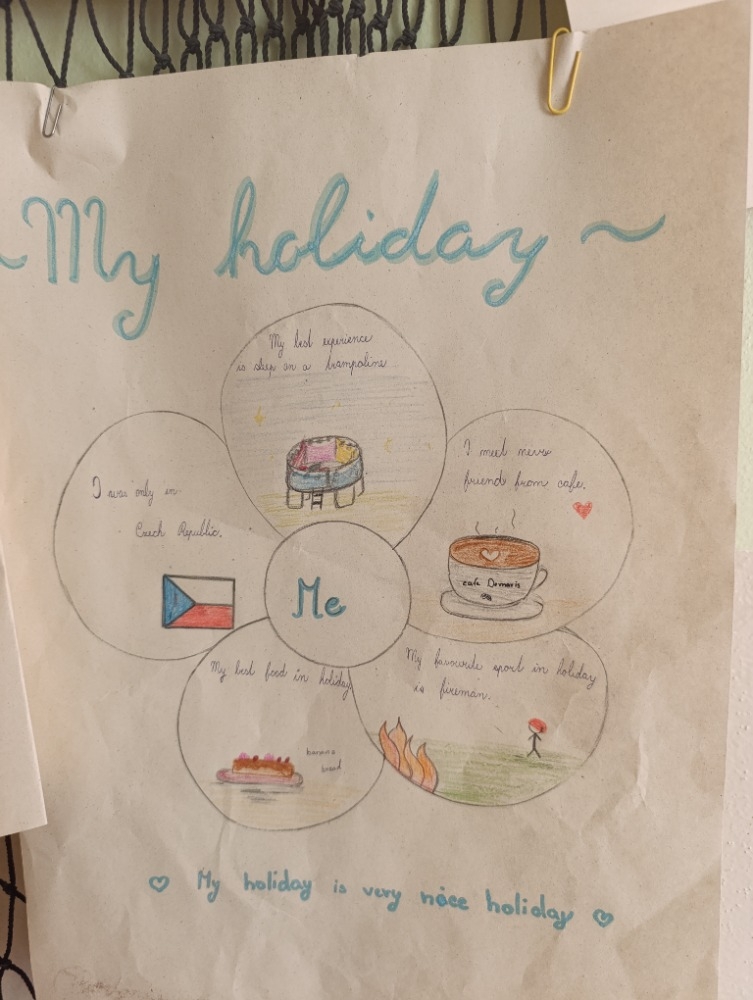 ~ My holiday ~
My best experience
is sleep on a trampoline
I meet new
friend from cafe.
cafe Damaris
I was only in
Czech Republic.
Me
My best food in holiday
banana
bread
My favourite sport in holiday
is fireman.
My holiday is very nice holiday